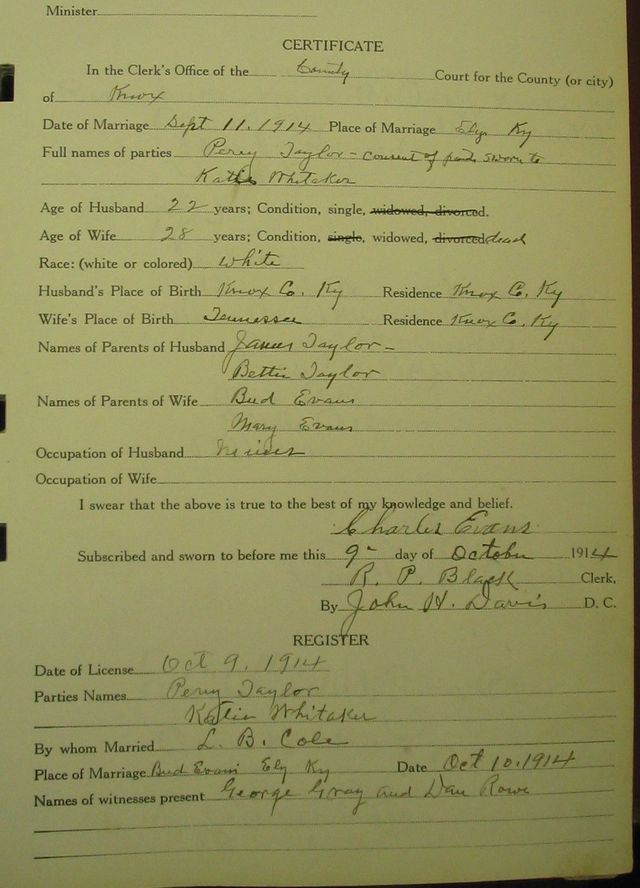 Minister
CERTIFICATE
In the Clerk's Office of the County Court for the County (or city)
of Knox
Date of Marriage Sept 11, 1914 Place of Marriage Ely Ky
Full names of parties Perry Taylor - consent of sworn to
Katie Whitaker
Age of Husband 22 years; Condition, single, widowed, divorced.
Age of Wife 28 years; Condition, single, widowed, divorced dead
Race: (white or colored) White
Husband's Place of Birth Knox Co. Ky Residence Knox Co, Ky
Wife's Place of Birth Tennessee Residence Knox Co, Ky
Names of Parents of Husband James Taylor -
Bettie Taylor
Names of Parents of Wife Bud Evans
Mary Evans
Occupation of Husband Miner
Occupation of Wife
I swear that the above is true to the best of my knowledge and belief.
Charles Evans
Subscribed and sworn to before me this 9- day of October 1914
R. P. Black Clerk,
By John H. Davis D. C.
REGISTER
Date of License Oct 9, 1914
Parties Names Perry Taylor
Katie Whitaker
By whom Married L. B. Cole
Place of Marriage Bud Evans Ely Ky Date Oct 10, 1914
Names of witnesses present George Gray and Dan Rowe